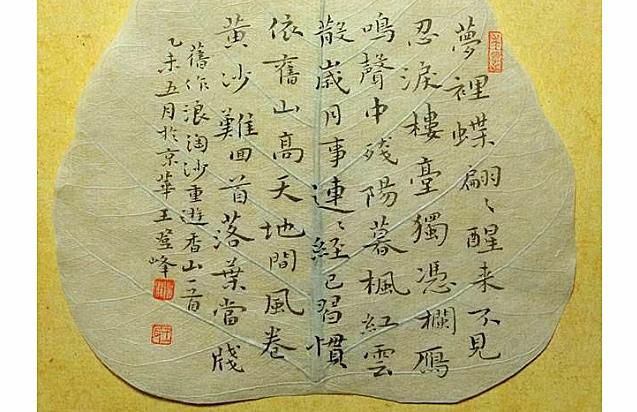 夢裡蝶翩〻醒来不見
忍淚樓臺獨憑欄鴈
鳴聲中残陽暮楓紅雲
散歲月事連〻經已習慣
依舊山高天地間風卷
黄沙難回首落葉當牋
舊作浪淘沙重遊香山一首
乙未五月於京華王登峰